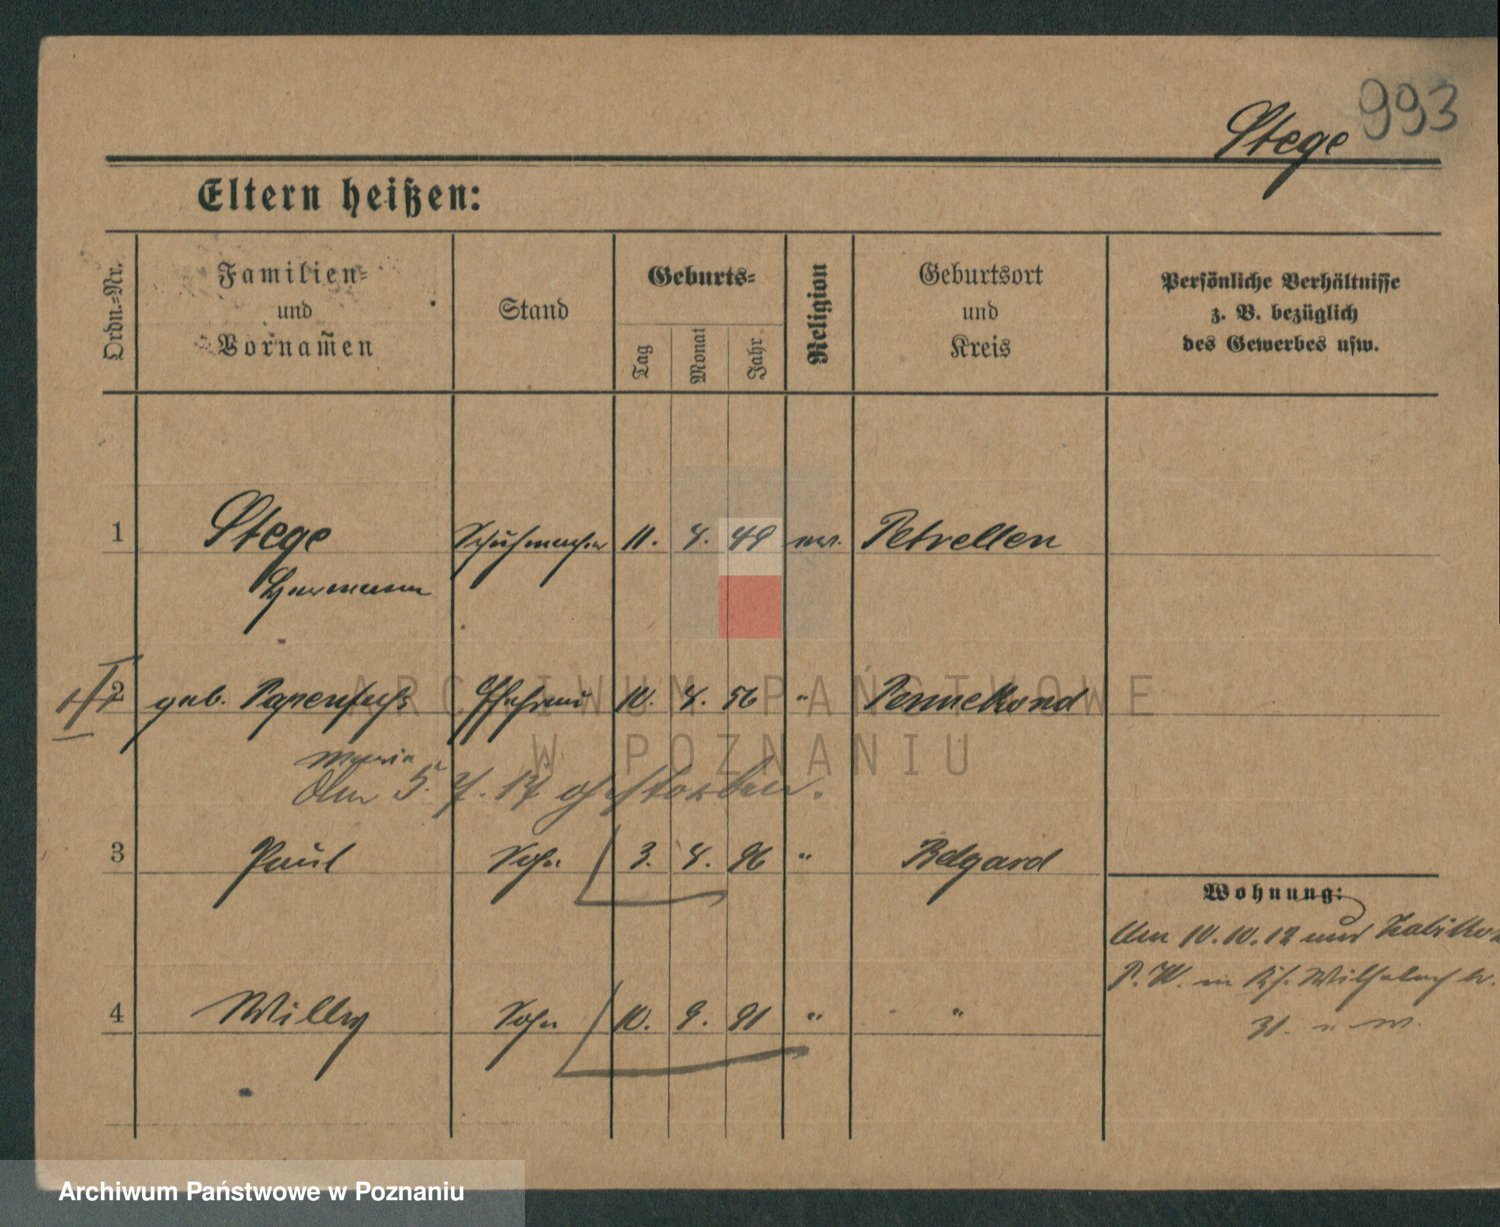 993
Stege
Eltern heißen:
Ordn.=Nr.
Familien=
und
Vornam̄en
Stand
Geburts=
Tag
Monat
Jahr
Religion
Geburtsort
und
Kreis
Persönliche Verhältnisse
z. B. bezüglich
des Gewerbes usw.
1 Stege Schuhmacher 11. 4. 49 ev. Petrellen
Hermann
2 geb. Papenfuß Ehefrau 10. 4. 56 "
Maria
Am 5. 7. 17 gestorben.
3 Paul Sohn 3. 4. 86 " Belgard
4 Willy Sohn 10. 9. 91 " "
Wohnung:
Am 10. 10. 12
ARCHIWUM PAŃSTWOWE
W POZNANIU
Archiwum Państwowe w Poznaniu